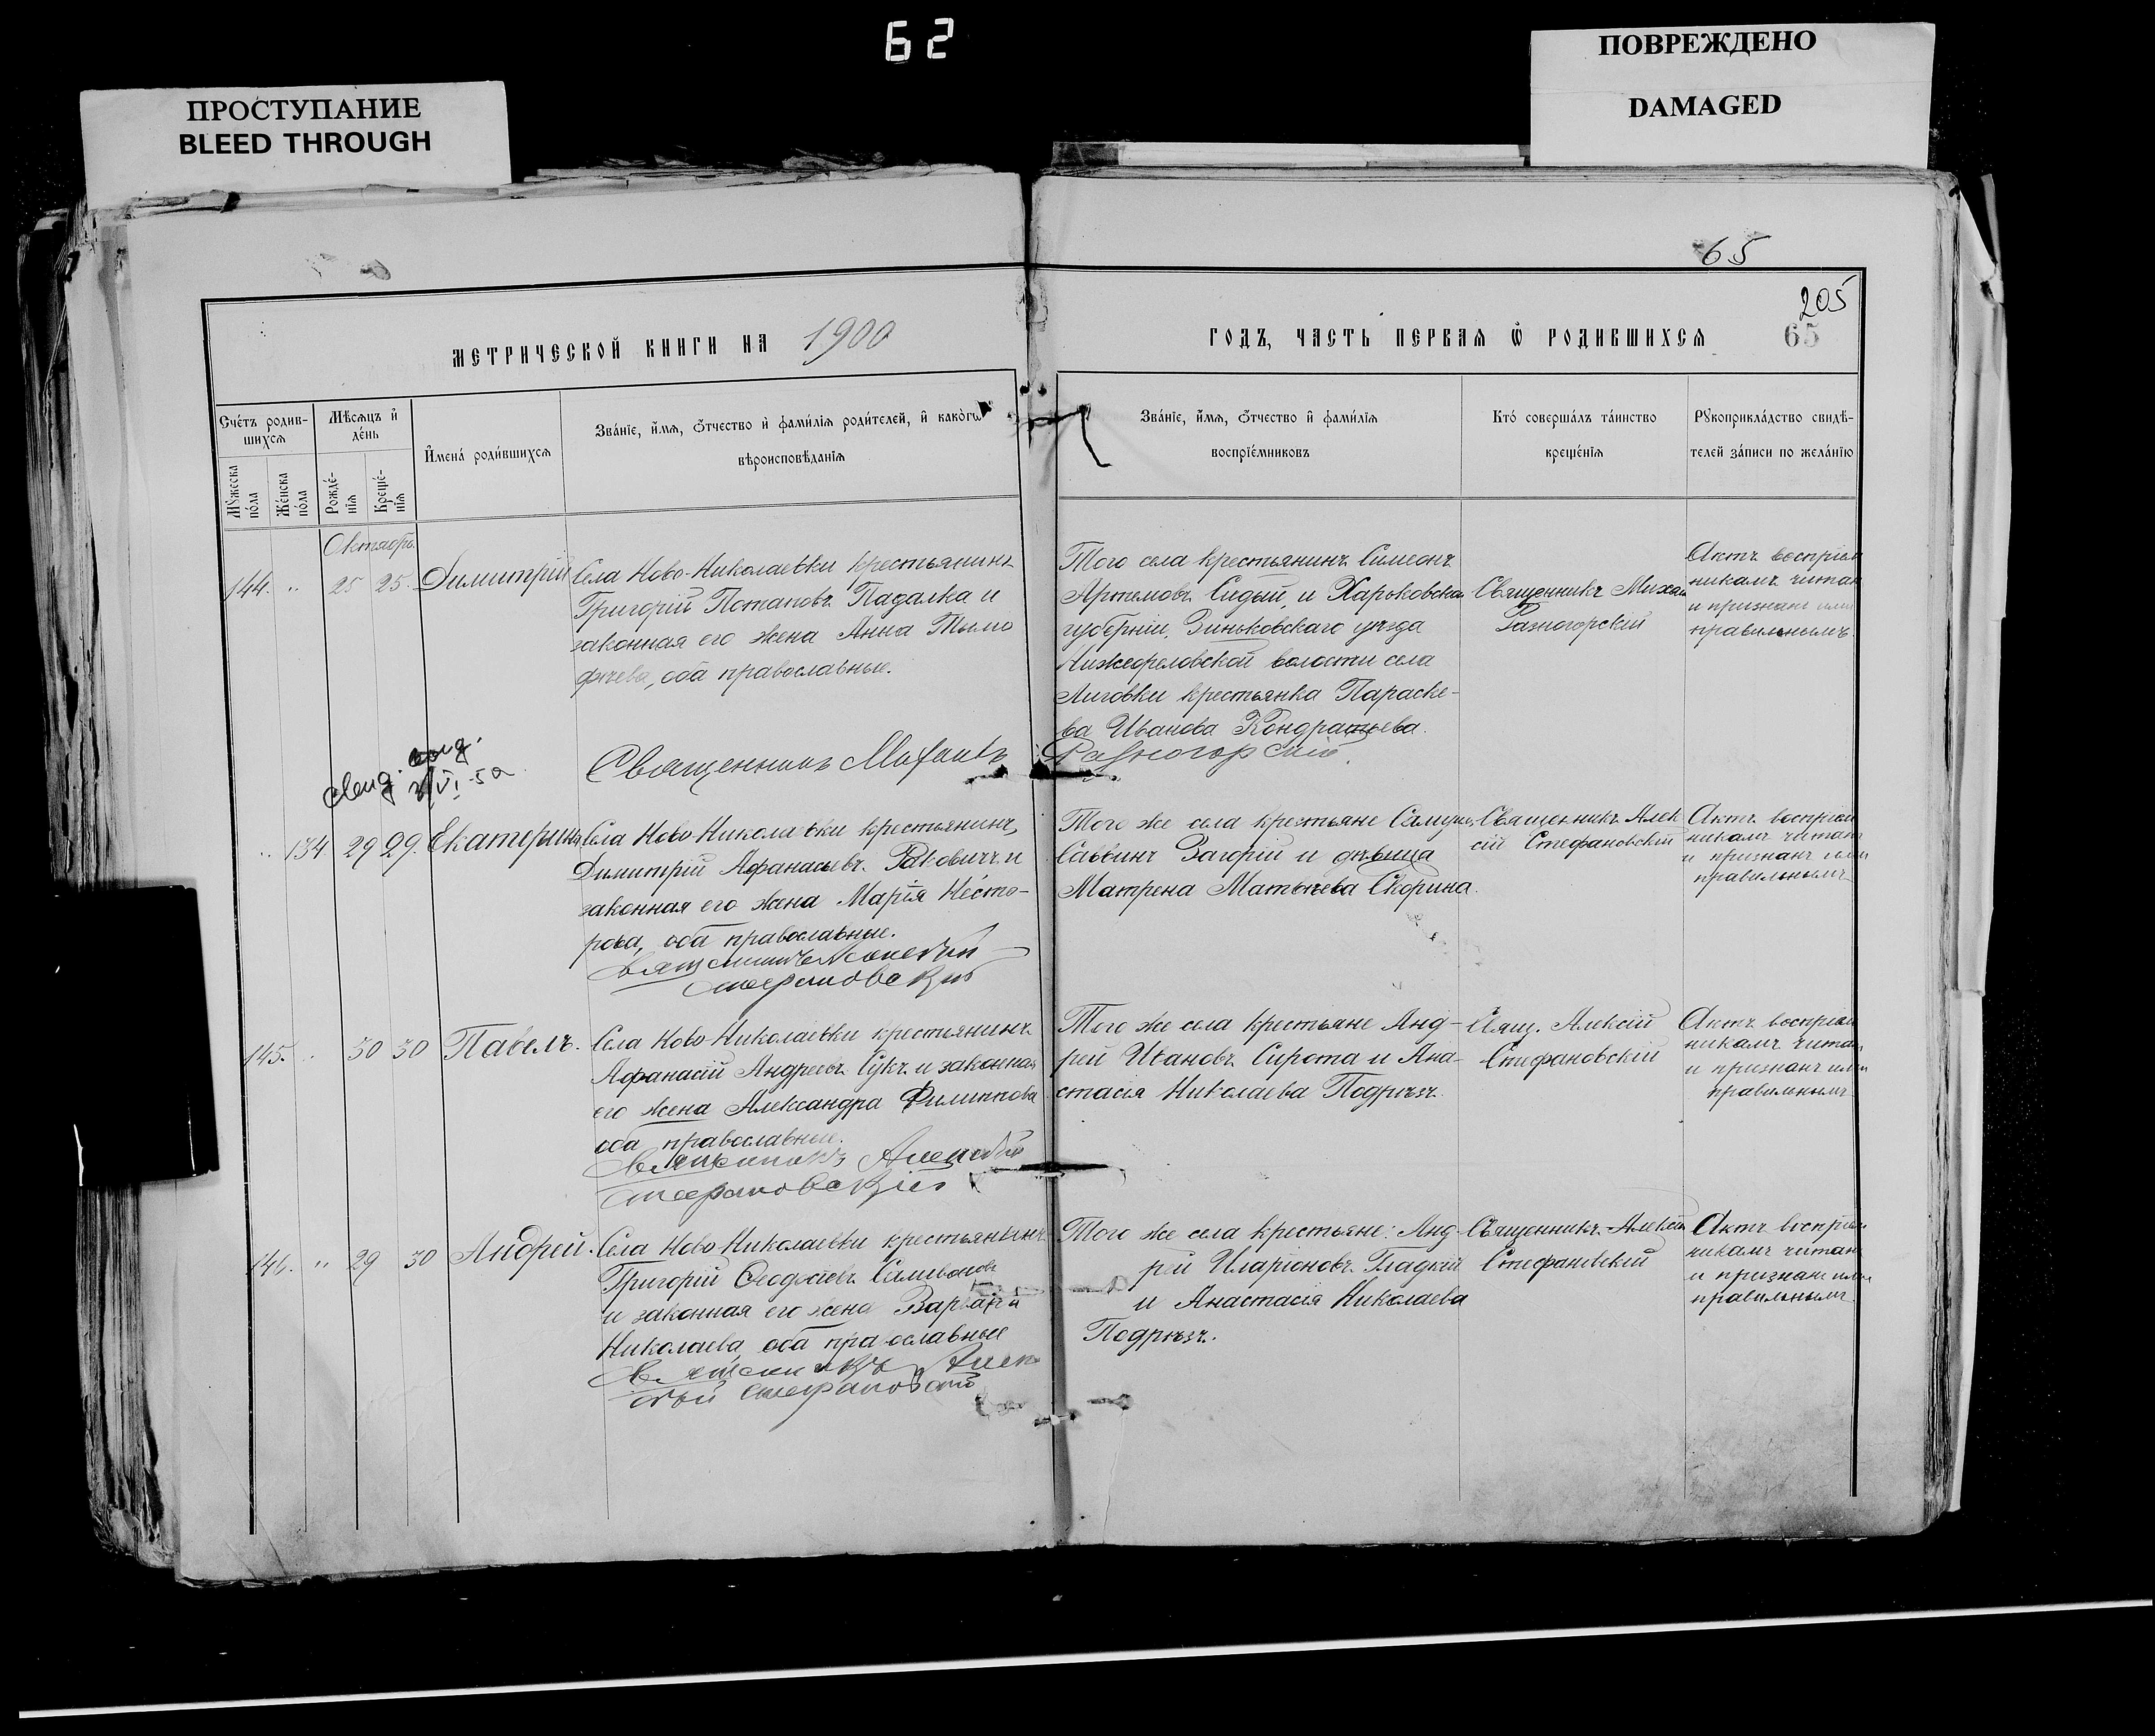 62
ПРОСТУПАНИЕ
BLEED THROUGH
ПОВРЕЖДЕНО
DAMAGED
65
205
65
МЕТРИЧЕСКОЙ КНИГИ НА 1900
ГОДЪ, ЧАСТЬ ПЕРВАЯ Ѿ РОДИВШИХСЯ
Счетъ родив-
шихся
Мѣсяцъ и
день
Имена родившихся
Званіе, имя, отчество и фамилія родителей, и какогѡ
вѣроисповѣданія
Мужеска
пола
Женска
пола
Рожде-
нія
Креще-
нія
Званіе, имя, отчество и фамилія
воспріемниковъ
Кто совершалъ таинство
крещенія
Рукоприкладство свидѣ-
телей записи по желанію
Октябрь.
144. " 25 25. Димитрій
Села Ново-Николаевки крестьянинъ
Григорій Потаповъ Падалка и
законная его жена Анна Тимо
фѣева, оба православные.
Священникъ Михаилъ Разногорскій.
Того села крестьянинъ Симеонъ
Артемовъ Сидый, и Харьковской
губерніи, Зиньковскаго уѣзда
волости села
Лиговки крестьянка Параске-
ва Иванова Кондратьева.
Священникъ Михаилъ
Разногорскій
Актъ воспріем
никамъ читанъ
и признанъ ими
правильнымъ.
" 134 29 29. Екатерина
Села Ново Николаевки крестьянинъ
Димитрій Афанасьевъ Раковичъ и
законная его жена Марія Несто-
рова, оба православные.
Священникъ Алексѣй
Стефановскій
Того же села крестьяне Самуилъ
Саввинъ Загорій и дѣвица
Матрена Матвѣева Скорина.
Священникъ Алек
сій Стефановскій
Актъ воспріем
никамъ читанъ
и признанъ ими
правильнымъ
145. " 30 30 Павелъ.
Села Ново Николаевки крестьянинъ
Афанасій Андреевъ Сукъ и законная
его жена Александра Филиппова
оба православные.
Священникъ Алексѣй
Стефановскій
Того же села крестьяне Анд-
рей Ивановъ Сирота и Ана-
стасія Николаева Подрѣзъ.
Свящ. Алексій
Стефановскій
Актъ воспріем
никамъ читанъ
и признанъ ими
правильнымъ
146. " 29 30 Андрей.
Села Ново Николаевки крестьянинъ
Григорій Селивановъ
и законная его жена Варвара
Николаева, оба православные
Священникъ Алек
сѣй Стефановскій
Того же села крестьяне: Анд-
рей Иларіоновъ Гладкій
и Анастасія Николаева
Подрѣзъ.
Священникъ Алексій
Стефановскій
Актъ воспріем
никамъ читанъ
и признанъ ими
правильнымъ